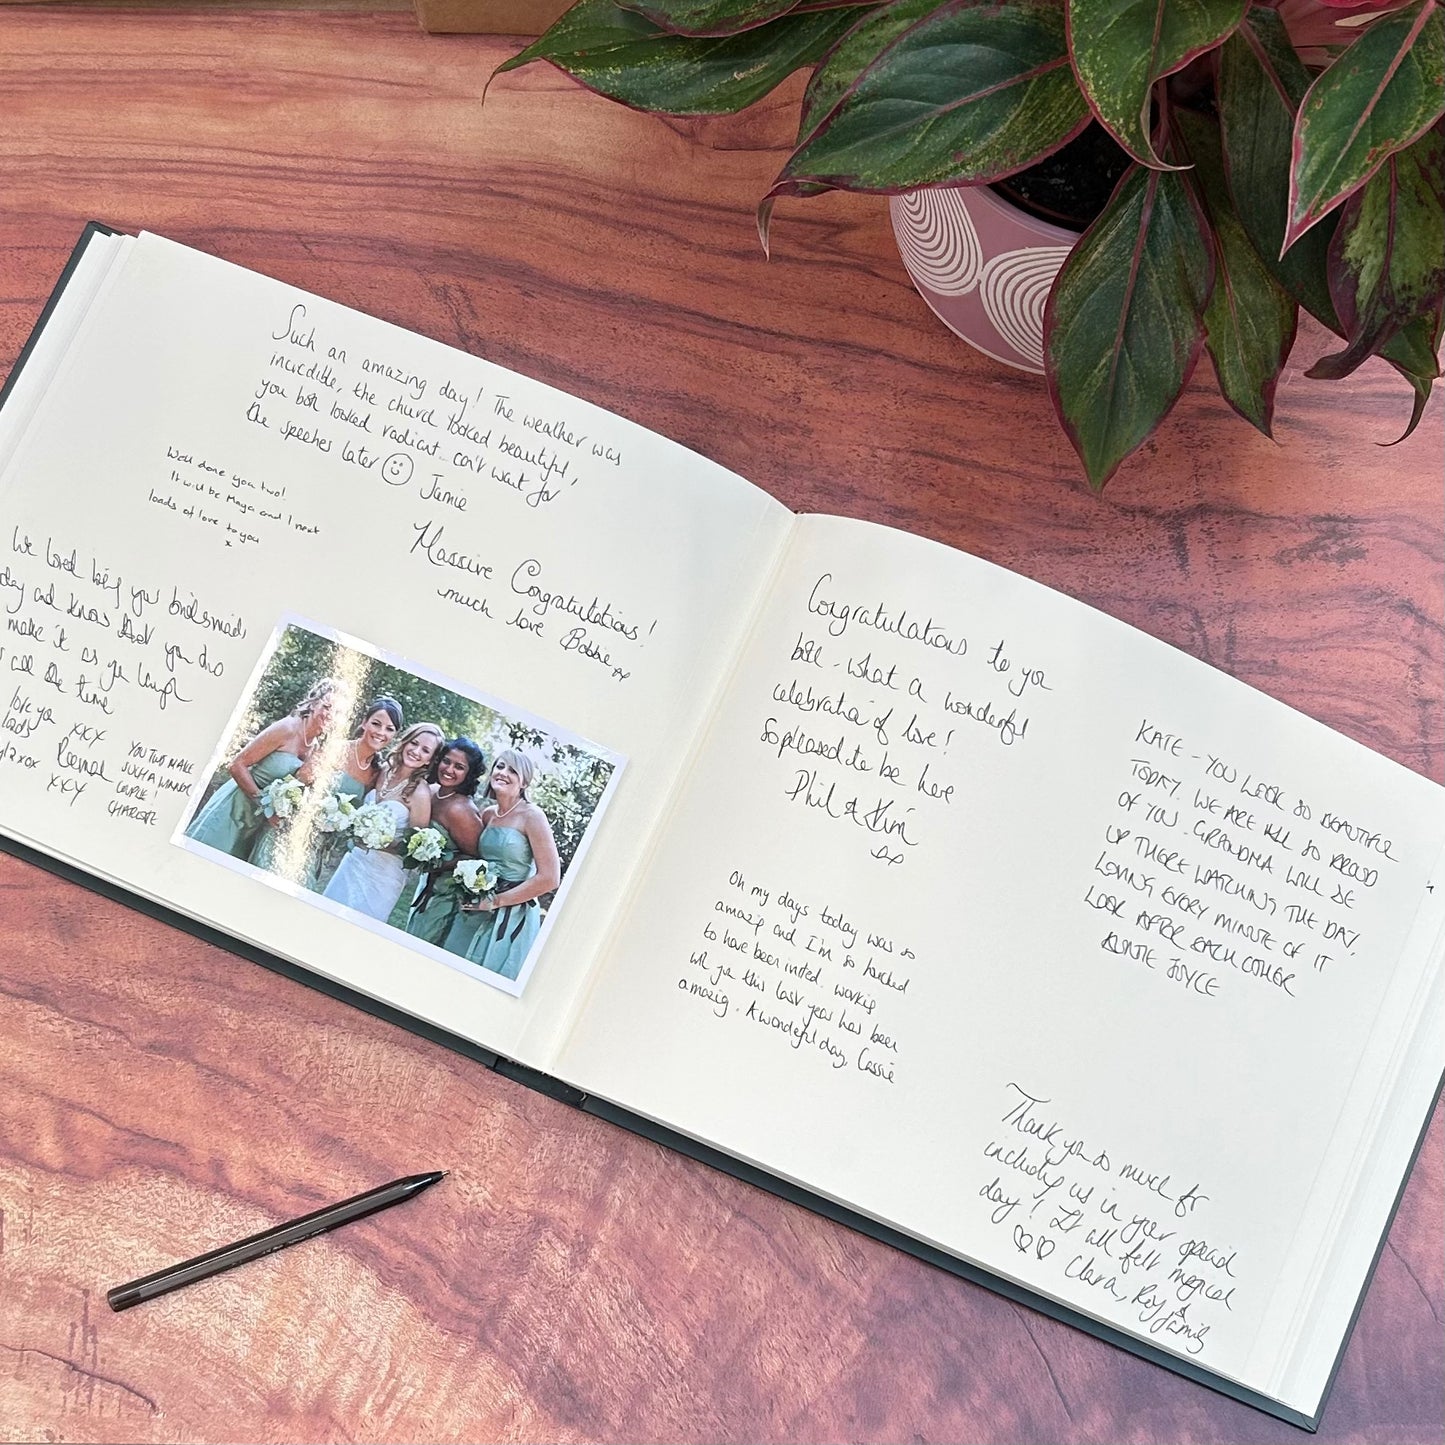 Such an amazing day! The weather was
incredible, the church looked beautiful,
you both looked radiant.. can't wait for
the speeches later Jamie
Well done you two!
It will be Maya and I next
loads of love to you
x
Massive Congratulations!
much love Bobbie xx
We loved being your bridesmaids
day and know that you two
make it as you laugh
all the time
love you xxx
loads
xox
xxx
YOU TWO MAKE
SUCH A WINNER
COUPLE!
CHARLOTTE
Congratulations to you
both - what a wonderful
celebration of love!
So pleased to be here
Phil & Kim
xx
Oh my days today was so
amazing and I'm so honoured
to have been invited. working
with you this last year has been
amazing. A wonderful day, Cassie
KATE - YOU LOOK SO BEAUTIFUL
TODAY. WE ARE ALL SO PROUD
OF YOU. GRANDMA WILL BE
UP THERE WATCHING THE DAY,
LOVING EVERY MINUTE OF IT
LOOK AFTER EACH OTHER
AUNTIE JOYCE
Thank you so much for
including us in your special
day! It all felt magical
Clara, Roy &
family